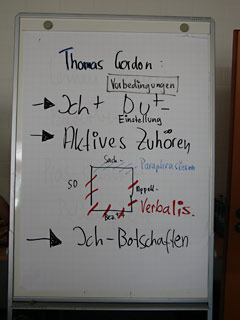 Thomas Gordon:
Vorbedingungen
Ich + Du +
Einstellung
Aktives Zuhören
Sach-
Paraphrasieren
SO
Appell-
Bez.
Verbalis.
Ich-Botschaften